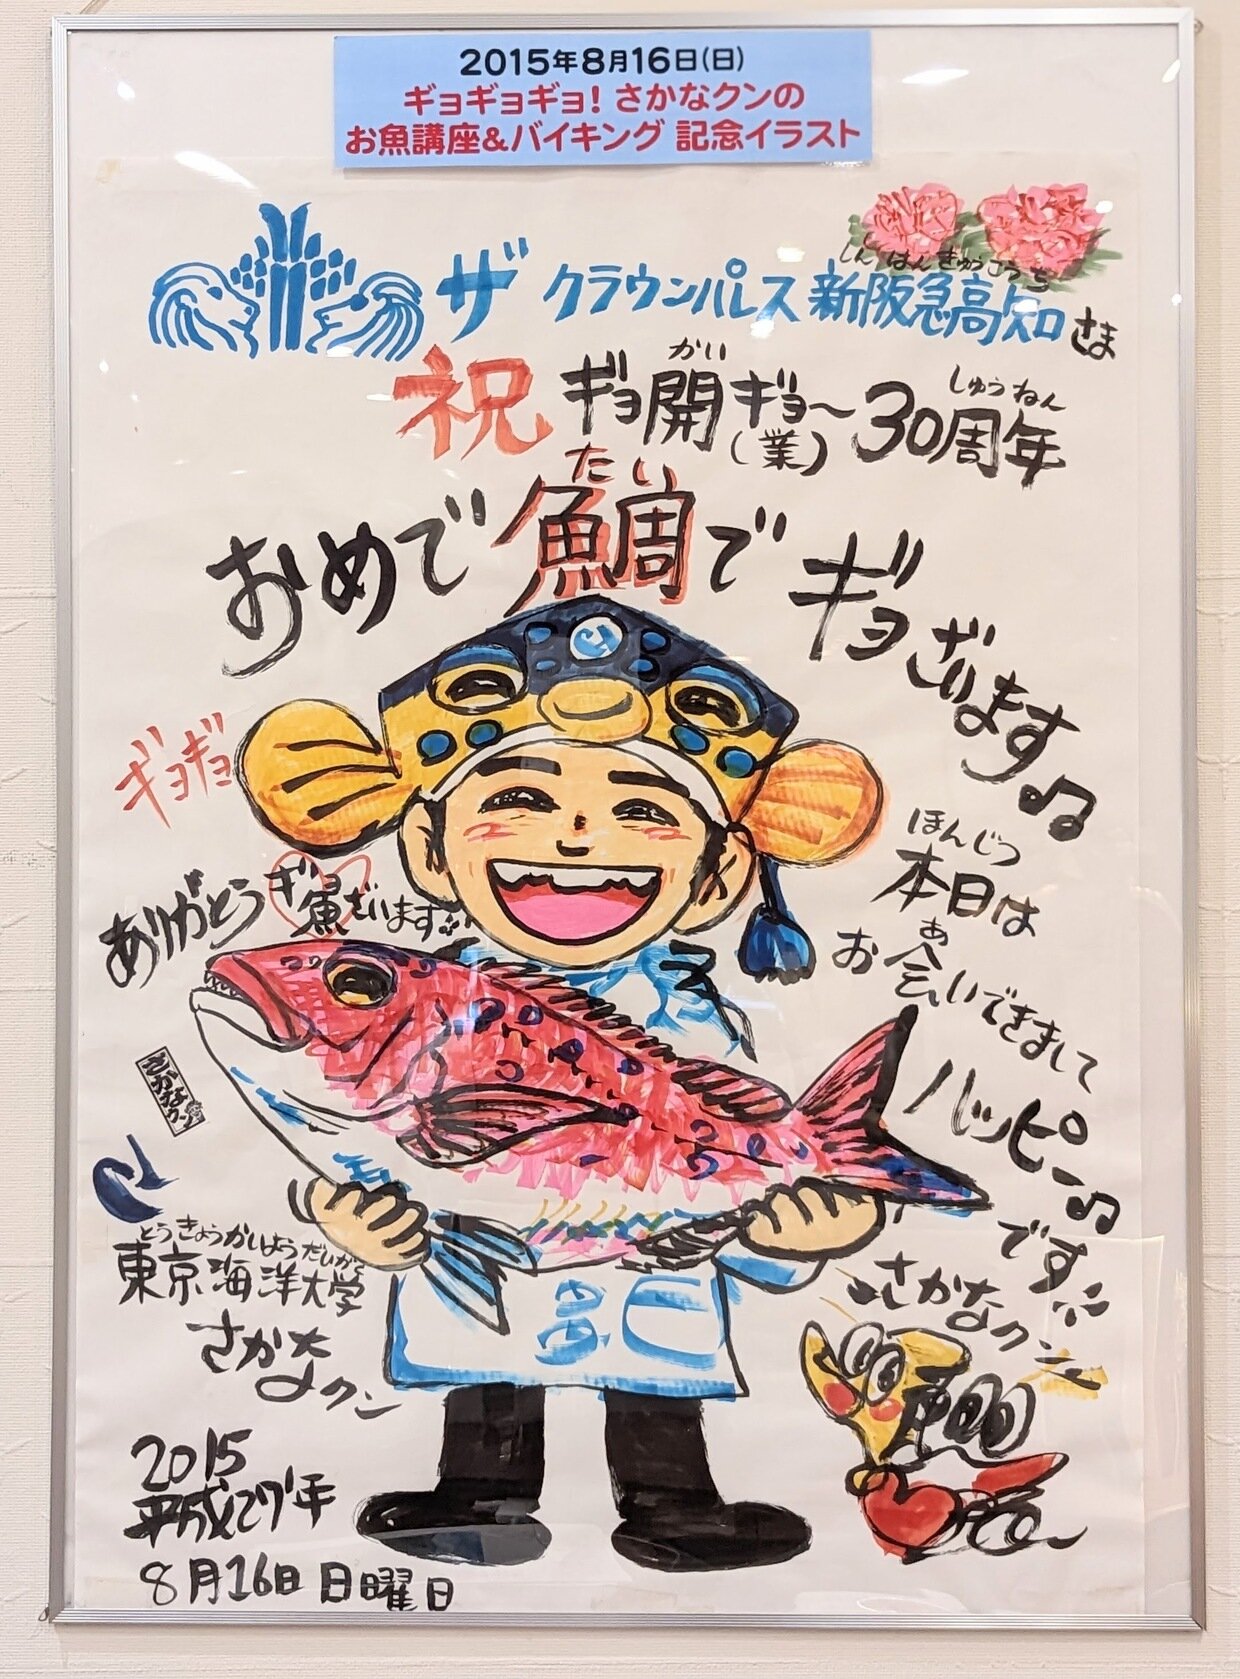 2015年8月16日(日)
ギョギョギョ！さかなクンの
お魚講座&バイキング 記念イラスト
しんはんきゅうこうち
ザ クラウンパレス新阪急高知さま
かい しゅうねん
祝 ギョ開ギョ〜(業)30周年
たい
おめで鯛でギョざいます♫
ギョギョ
ほんじつ
本日は
あ
お会いできまして
ハッピー♫
です
ありがとうギ魚ざいます
さかなクン
とうきょうかいようだいがく
東京海洋大学
さかなクン
さかなクン
2015
平成27年
8月16日 日曜日